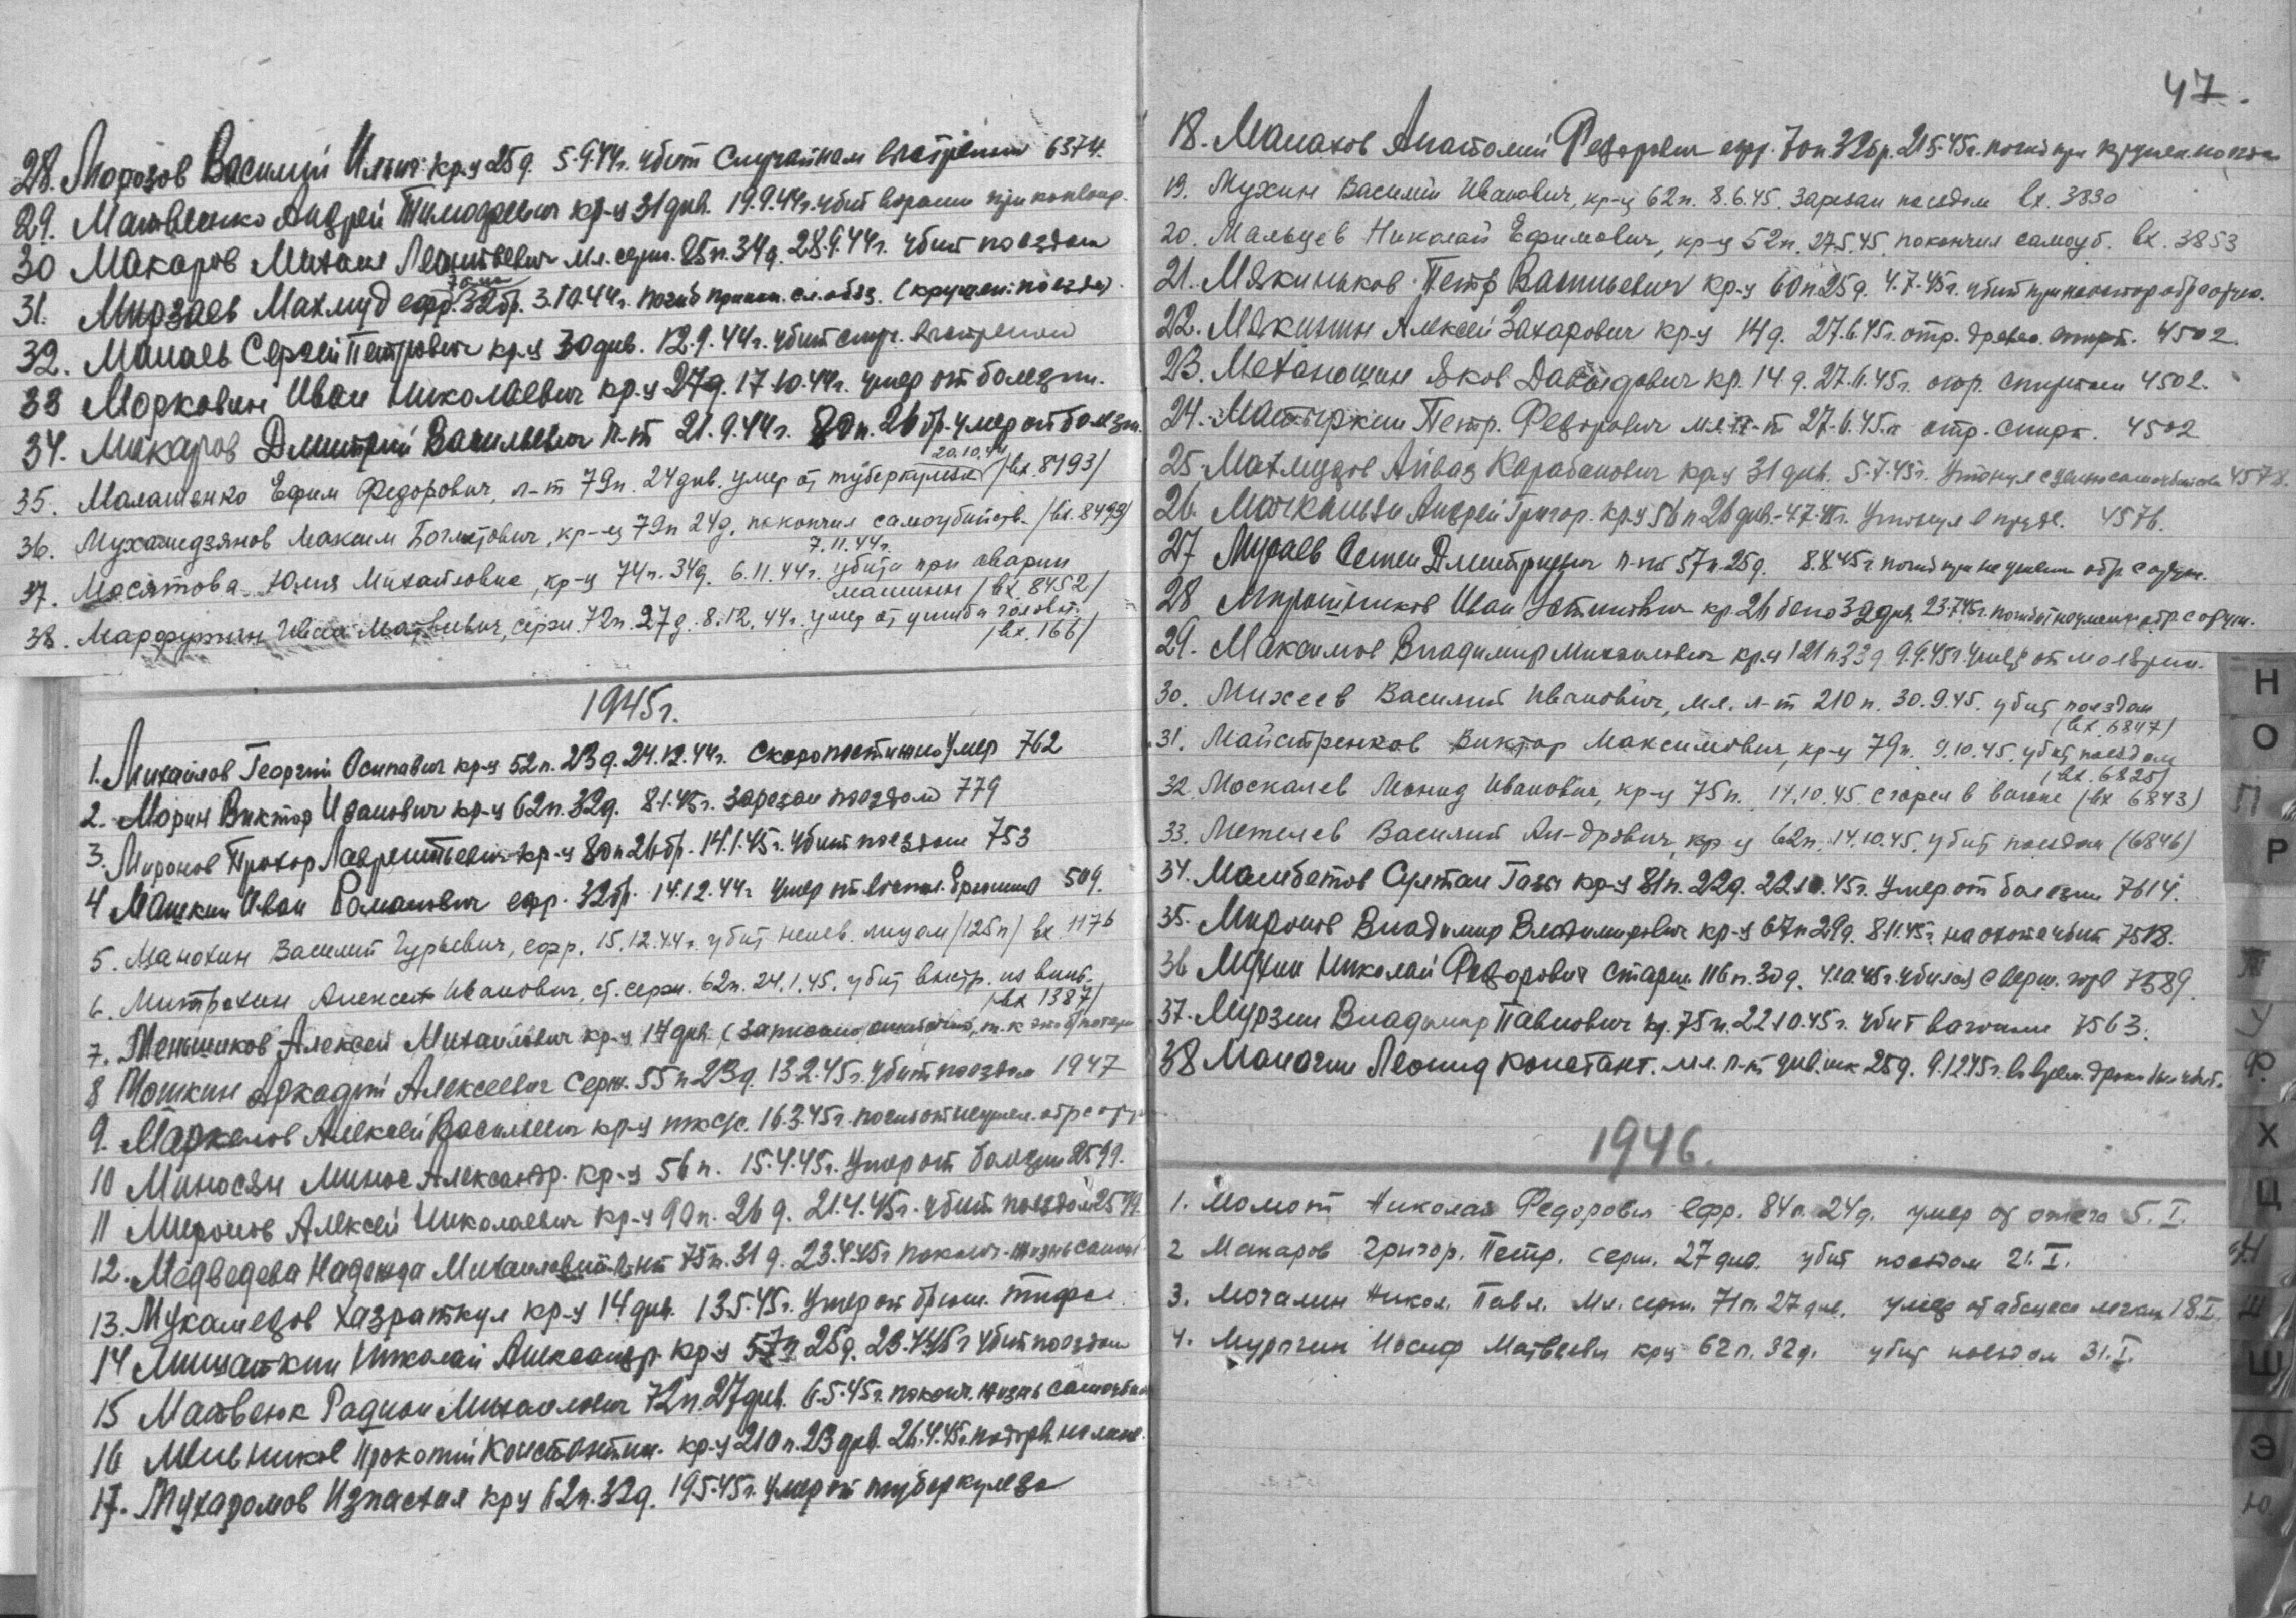 28. Морозов Василий Ильич кр-ц 25 д. 5.9.44г. убит случайным выстрелом 6374.
29. Матвеенко Андрей Тимофеевич кр-ц 31 див. 19.9.44г. убит ворами при конвоир.
30 Макаров Михаил Леонтьевич мл. серж. 85п. 34д. 28.9.44г. убит поездом
31. Мирзаев Махмуд ефр. 32бр. 3.10.44г. погиб при исп. сл. обяз. (крушен. поезда).
32. Манаев Сергей Петрович кр-ц 30 див. 12.9.44г. убит случ. выстрелом
33 Морковин Иван Николаевич кр-ц 27д. 17.10.44г. умер от болезни.
34. Макаров Дмитрий Васильевич л-т 21.9.44г. 80п. 26бр. умер от болезн.
35. Малашенко Ефим Федорович, л-т 79п. 24 див. умер от туберкулеза 20.10.44 /вх. 8193/
36. Мухамедзянов Максим , кр-ц 79п 24д. покончил самоубийств. /вх. 8493/
7.11.44г.
37. Мосятова Юлия Михайловна, кр-ц 74п. 34д. 6.11.44г. убита при аварии
машины /вх. 8452/
38. Марфутин Иван Матвеевич, серж. 72п. 27д. 8.12.44г. умер от ушиба головы.
/вх. 166/
1945г.
1. Михайлов Георгий Осипович кр-ц 52п. 23д. 24.12.44г. Скоропостижно умер 762
2. Морин Виктор Иванович кр-ц 62п. 32д. 8.1.45г. зарезан поездом 779
3. Миронов Прохор Лаврентьевич кр-ц 80п 26бр. 14.1.45г. убит поездом 753
4 Машкин Иван Романович ефр. 32бр. 14.12.44г умер от воспал. брюшины 509.
5. Манохин Василий Гурьевич, ефр. 15.12.44г. убит неизв. лицом /125п/ вх. 1176
6. Митрохин Алексей Иванович, ст. серж. 62п. 24.1.45. убит выстр. из винт.
/вх 1387/
7. Меньшиков Алексей Михайлович кр-ц 14 див. (записано ошибочно, т. к.
8 Мошкин Аркадий Алексеевич серж. 55п 23д. 13.2.45г. убит поездом 1947
9. Маркелов Алексей Васильевич кр-ц 16.3.45г. погиб от неумел. обр с оруж
10 Миносян Минас Александр. кр-ц 56п. 15.4.45г. умер от болезни 2599.
11 Миронов Алексей Николаевич кр-ц 90п. 26д. 21.4.45г. убит поездом 2579.
12. Медведева Надежда Михайловна 75п. 31д. 23.4.45г поконч. жизнь самоуб
13. Мухамедов Хазраткул кр-ц 14 див. 13.5.45г. умер от брюш. тифа
14 Мишаткин Николай Александр. кр-ц 57п 25д. 23.4.45г убит поездом
15 Матвеюк Радион Михайлович 72п. 27 див. 6.5.45г. поконч. жизнь самоубий
16 Мельников Прокопий Константин. кр-ц 210п. 23 див. 26.4.45г. подорв. на мине.
17. Мухаромов кр-ц 62п. 32д. 19.5.45г. умер от туберкулеза
47.
18. Малахов Анатолий Федорович ефр. 70п 32бр. 21.5.45г. погиб при крушен. поезда
19. Мухин Василий Иванович, кр-ц 62п. 8.6.45. зарезан поездом вх. 3830
20. Мальцев Николай Ефимович, кр-ц 52п. 27.5.45. покончил самоуб. вх. 3853
21. Мякиньков Петр Васильевич кр-ц 60п 25д. 4.7.45г. убит при неостор обр оруж.
22. Мякишин Алексей Захарович кр-ц 14д. 27.6.45г. отр. древес. спирт. 4502.
23. Механошин Яков Давыдович кр. 14д. 27.6.45г. отр. спиртом 4502.
24. Петр. Федорович мл. л-т 27.6.45г. отр. спирт. 4502
25. Махмудов Айваз Карабанович кр-ц 31 див. 5.7.45г. утонул с целью самоубийства 4578.
26. Мачкальян Андрей Григор. кр-ц 56п 26 див. 4.7.45г. утонул в пруде. 4576.
27 Мусаев Семен Дмитриевич л-т 57п. 25д. 8.8.45г погиб при неумелом обр. с оруж.
28 Мирошников Иван Устинович кр. 32 див. 23.7.45г. погиб от неумен. обр. с оруж.
29. Максимов Владимир Михайлович кр-ц 121п. 33д 9.9.45г. умер от малярии.
30. Михеев Василий Иванович, мл. л-т 210п. 30.9.45. убит поездом
(вх. 6847)
31. Майстренков Виктор Максимович, кр-ц 79п. 9.10.45. убит поездом
(вх. 6825)
32. Москалев Леонид Иванович, кр-ц 75п. 14.10.45. сгорел в вагоне (вх 6843)
33. Метелев Василий Ал-дрович, кр-ц 62п. 14.10.45. убит поездом (6846)
34. Мамбетов Султан Газы кр-ц 81п. 22д. 22.10.45г. умер от болезни 7614.
35. Миронов Владимир Владимирович кр-ц 67п 29д. 8.11.45г. на охоте убит 7518.
36 Мухин Николай Федорович старш. 116п. 30д. 4.10.45г. убился с верш. горы 7589.
37. Мурзин Владимир Павлович кр. 75п. 22.10.45г. убит вагоном 7563.
38 Малагин Леонид Констант. мл. л-т див. шк 25д. 9.12.45г. во время драки убит.
1946.
1. Момот Николай Федорович ефр. 84п. 24д. умер от ожога 5.I.
2 Макаров Григор. Петр. серж. 27 див. убит поездом 21.I.
3. Мочалин Никол. Павл. мл. серж. 71п. 27 див. умер от абсцеса легких 18.I.
4. Мурагин Иосиф Матвеевич кр-ц 62п. 32д. убит поездом 31.I.
Н
О
П
Р
Т
У
Ф
Х
Ц
Ч
Ш
Щ
Э
Ю